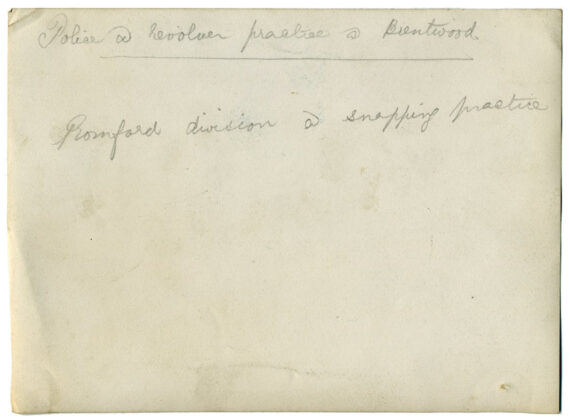 Police @ revolver practice @ Brentwood
Romford division @ snapping practice